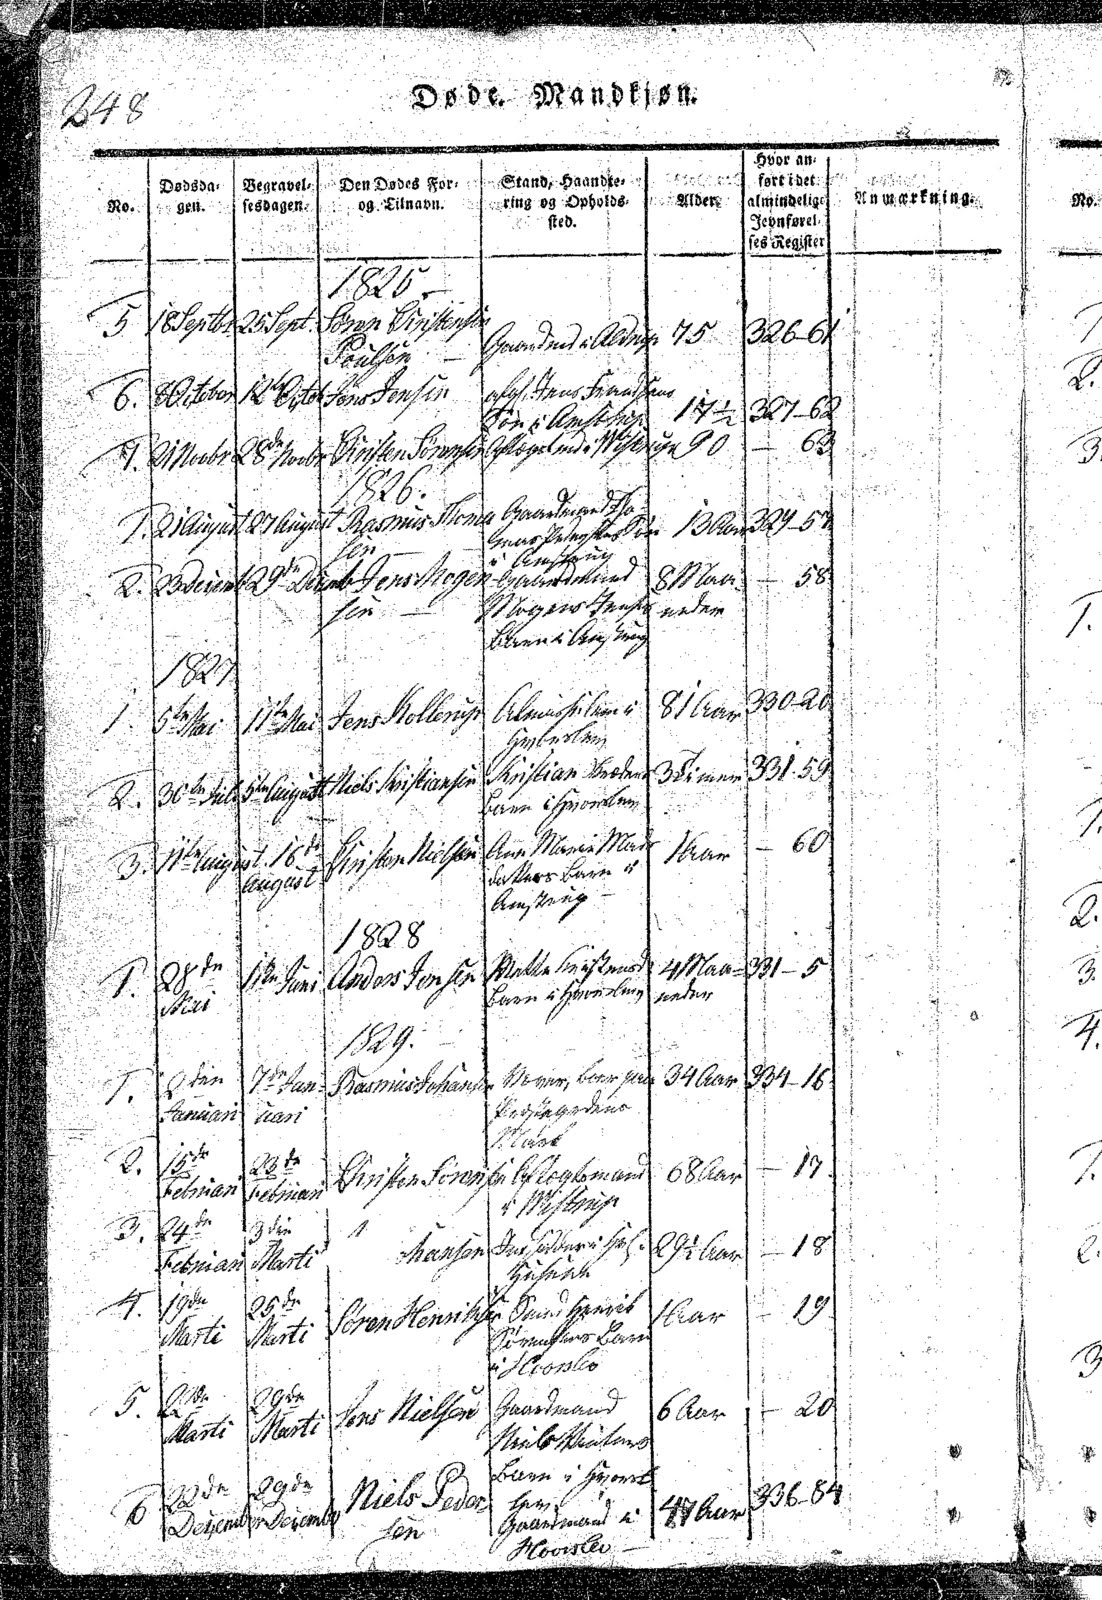 248
Døde. Mandkjøn.
No.
Dødsda-
gen.
Begravel-
sesdagen.
Den Dødes For-
og Tilnavn.
Stand, Haandte-
ring og Opholds-
sted.
Alder.
Hvor an-
ført i det
almindelige
Jevnførel-
ses Register
Anmærkning.
No.
1825.
5 18 Septbr 25 Sept. Søren Christensen
Poulsen Gaardmd i Aldrup 75 326-61
6. 8 October 12 Octob Jens Jensen afgl. Jens Frandsens
Søn i Amstrup 17½ 327-62
7. 21 Novbr 28de Novbr Christen Sørensen Aftægtsmd i Wistrup 90 — 63
1826.
1. 21 August 27 August Rasmus Thoma
sen Gaardmand Tho-
mas Søn
i Amstrup 13 Aar 329-57
2. 23 Decemb 29de Decemb Jens Mogen-
sen Gaardmand
Mogens Jensens
Barn i Amstrup 8 Maa-
neder — 58
1827
1. 5te Mai 11te Mai Jens Kollerup Almisselem i
81 Aar 330-20
2. 30te Juli 5te August Niels Kristiansen Kristian
Barn i Hvorslev 3 Timer 331-59
3. 11te August. 16de
August Christen Nielsen Ane Marie Mads
datters Barn i
Amstrup 1 Aar — 60
1828
1. 28de
Mai 1te Juni Anders Jensen Mette Kristensd
Barn i Hvorslev 4 Maa-
neder 331-5
1829.
1. 2den
Januari 7de Jan-
uari Rasmus Johansen
Mark 34 Aar 334-16
2. 15de
Februari 23de
Februari Christen Sørensen Aftægtsmand
i Wistrup 68 Aar — 17
3. 24de
Februari 3die
Marti Hansen Indsidder i
29½ Aar — 18
4. 19de
Marti 25de
Marti Søren Henriksen Smed Henrik
Sørensens Barn
i Hvorslev 1 Aar — 19
5. 22de
Marti 29de
Marti Jens Nielsen Gaardmand
Niels
Barn i Hvorslev
6 Aar — 20
6 22de
December 29de
December Niels Peder-
sen Gaardmand i
Hvorslev 47 Aar 336-84